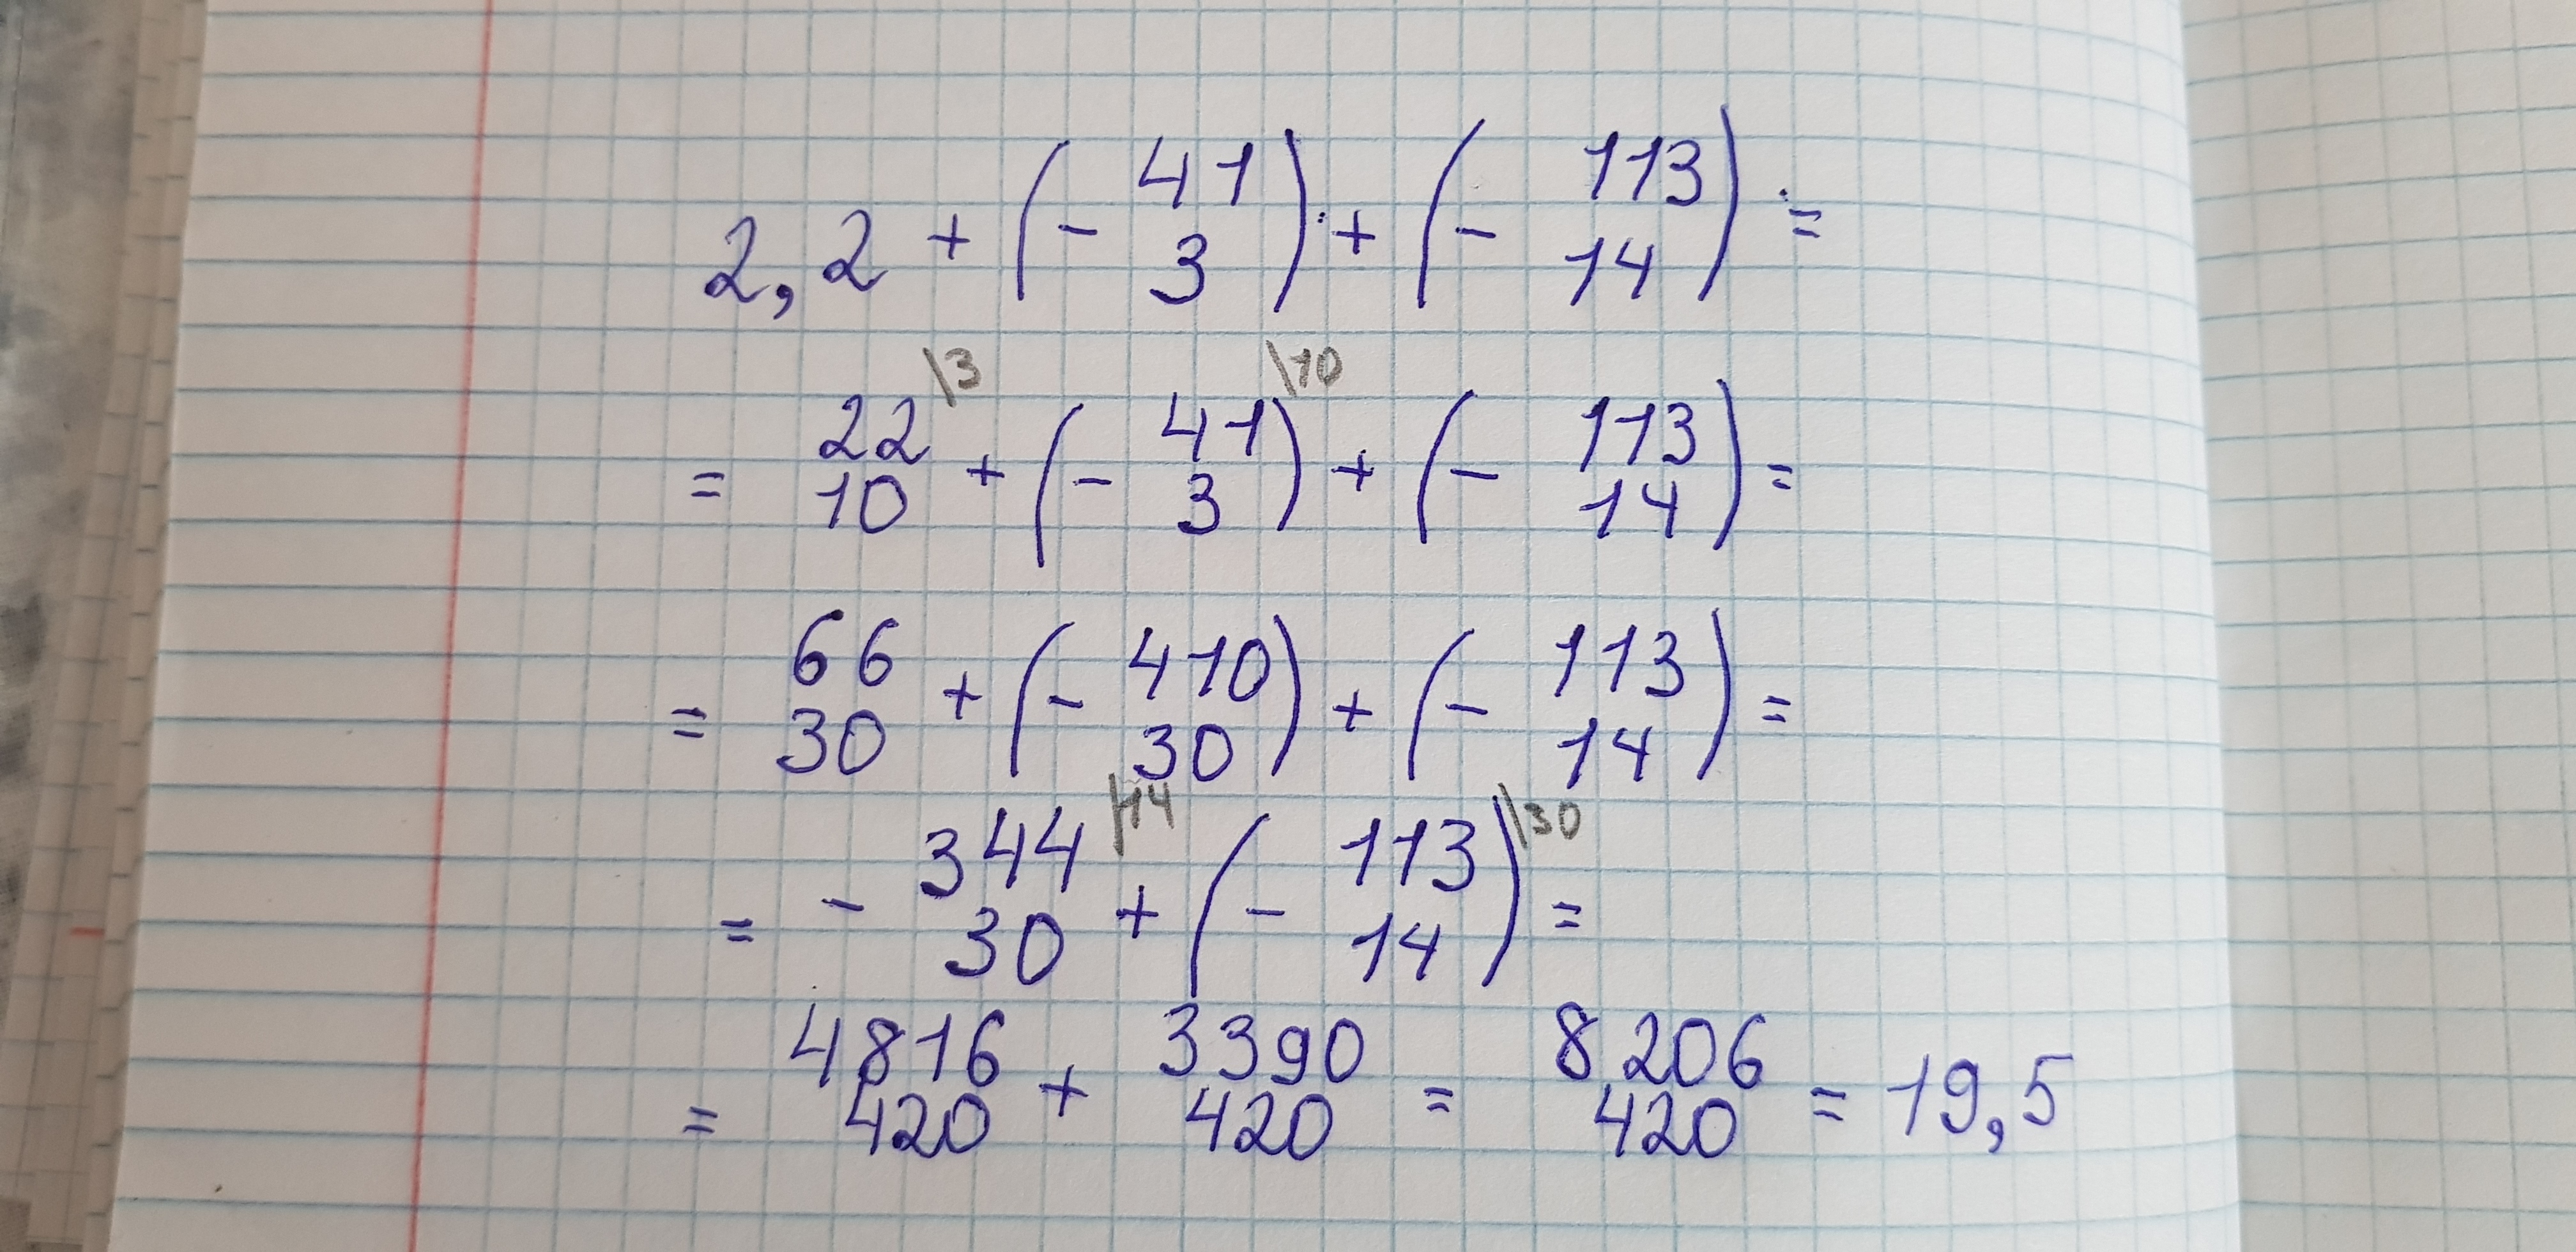 2,2 + (- 41/3) + (- 113/14) =
= 22/10 \3 + (- 41/3) \10 + (- 113/14) =
= 66/30 + (- 410/30) + (- 113/14) =
= - 344/30 \14 + (- 113/14) \30 =
= 4816/420 + 3390/420 = 8206/420 = 19,5